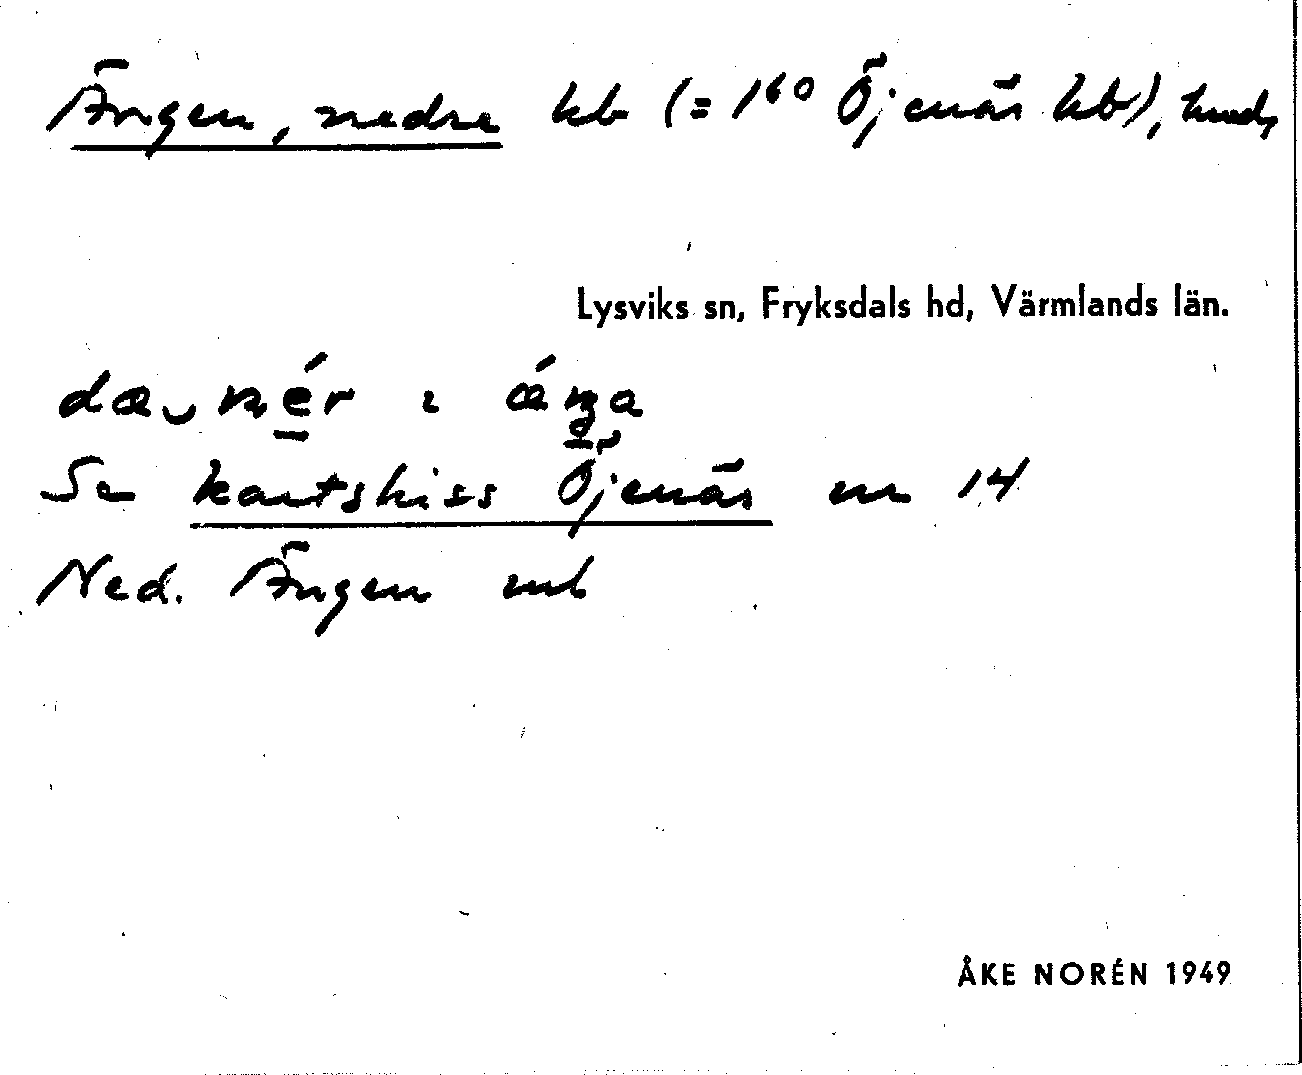 Ängen, nedre kb (= 1⁶⁰ Öjenäs kb), hmd,
Lysviks sn, Fryksdals hd, Värmlands län.
dæ‿nér ɩ ǽŋa
Se kartskiss Öjenäs nr 14
Ned. Ängen mb
ÅKE NORÉN 1949